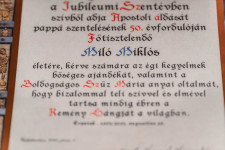 a Jubileumi Szentévben
szívből adja Apostoli áldását
pappá szentelésének 50. évfordulóján
Főtisztelendő
Miló Miklós
életére, kérve számára az égi kegyelmek
bőséges ajándékát, valamint a
Boldogságos Szűz Mária anyai oltalmát,
hogy bizalommal teli szívvel és elmével
tartsa mindig ébren a
Remény lángját a világban.